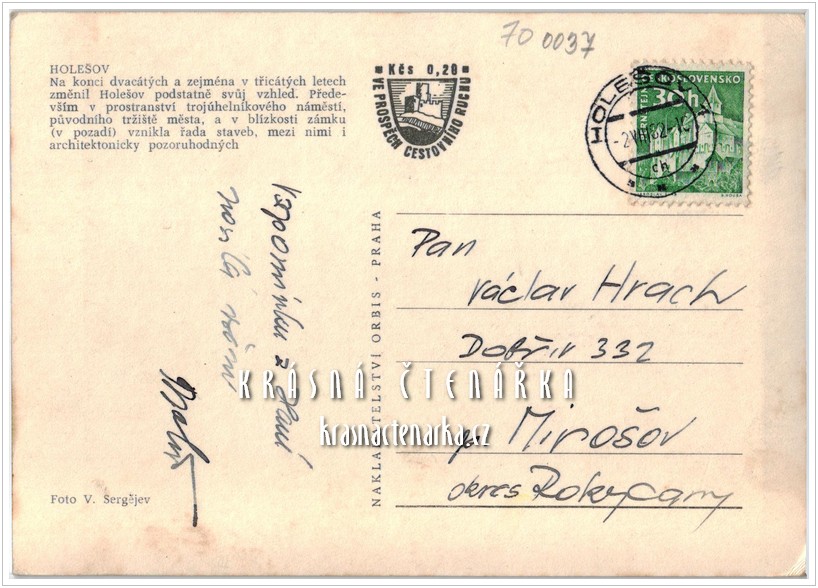 70 0037
HOLEŠOV
Na konci dvacátých a zejména v třicátých letech
změnil Holešov podstatně svůj vzhled. Přede-
vším v prostranství trojúhelníkového náměstí,
původního tržiště města, a v blízkosti zámku
(v pozadí) vznikla řada staveb, mezi nimi i
architektonicky pozoruhodných
Kčs 0,20
VE PROSPĚCH CESTOVNÍHO RUCHU
HOLEŠOV
ČESKOSLOVENSKO
30h
Vzpomínku z
posílá
NAKLADATELSTVÍ ORBIS - PRAHA
Pan
Václav Hrach
Dobřív 332
p. Mirošov
okres Rokycany
KRÁSNÁ ČTENÁŘKA
krasnactenarka.cz
Foto V. Sergějev